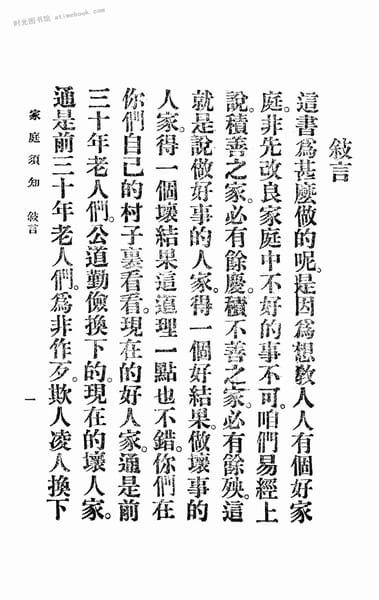 时光图书馆 atimebook.com
敍言
這書爲甚麽做的呢。是因爲想敎人人有個好家
庭。非先改良家庭中不好的事不可。咱們易經上
說。積善之家。必有餘慶。積不善之家。必有餘殃。這
就是說做好事的人家。得一個好結果。做壞事的
人家得一個壞結果。這道理一點也不錯。你們在
你們自己的村子裏看看。現在的好人家。通是前
三十年老人們。公道勤儉換下的。現在的壞人家。
通是前三十年老人們。爲非作歹。欺人凌人換下
家庭須知 敍言
一